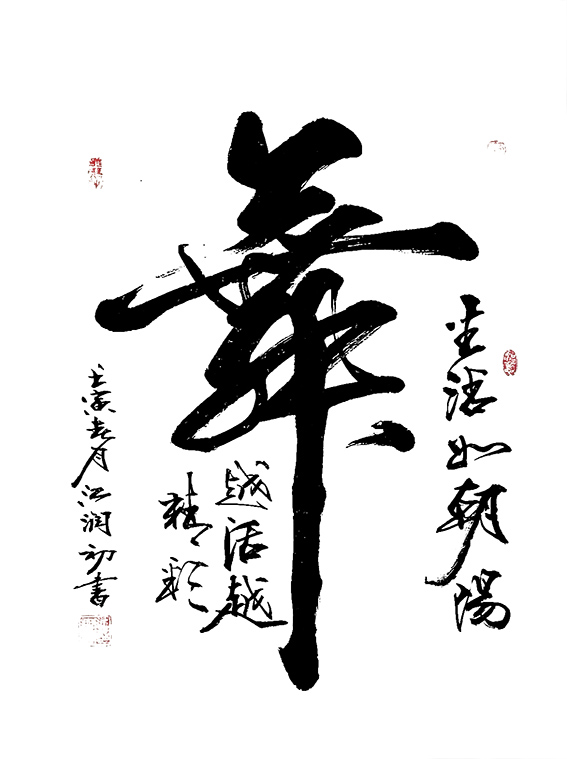 舞
生活如朝陽
越活越
精彩
壬寅春月江润初書